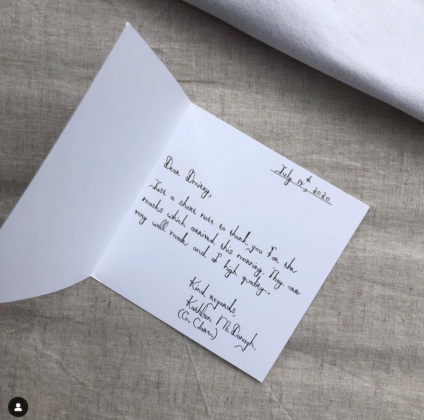 July 14th, 2020
Dear
Just a short note to thank you for the
masks which arrived this morning. They are
very well made and of high quality..
Kind regards,
Kathleen McDonagh
(Co. Clare)